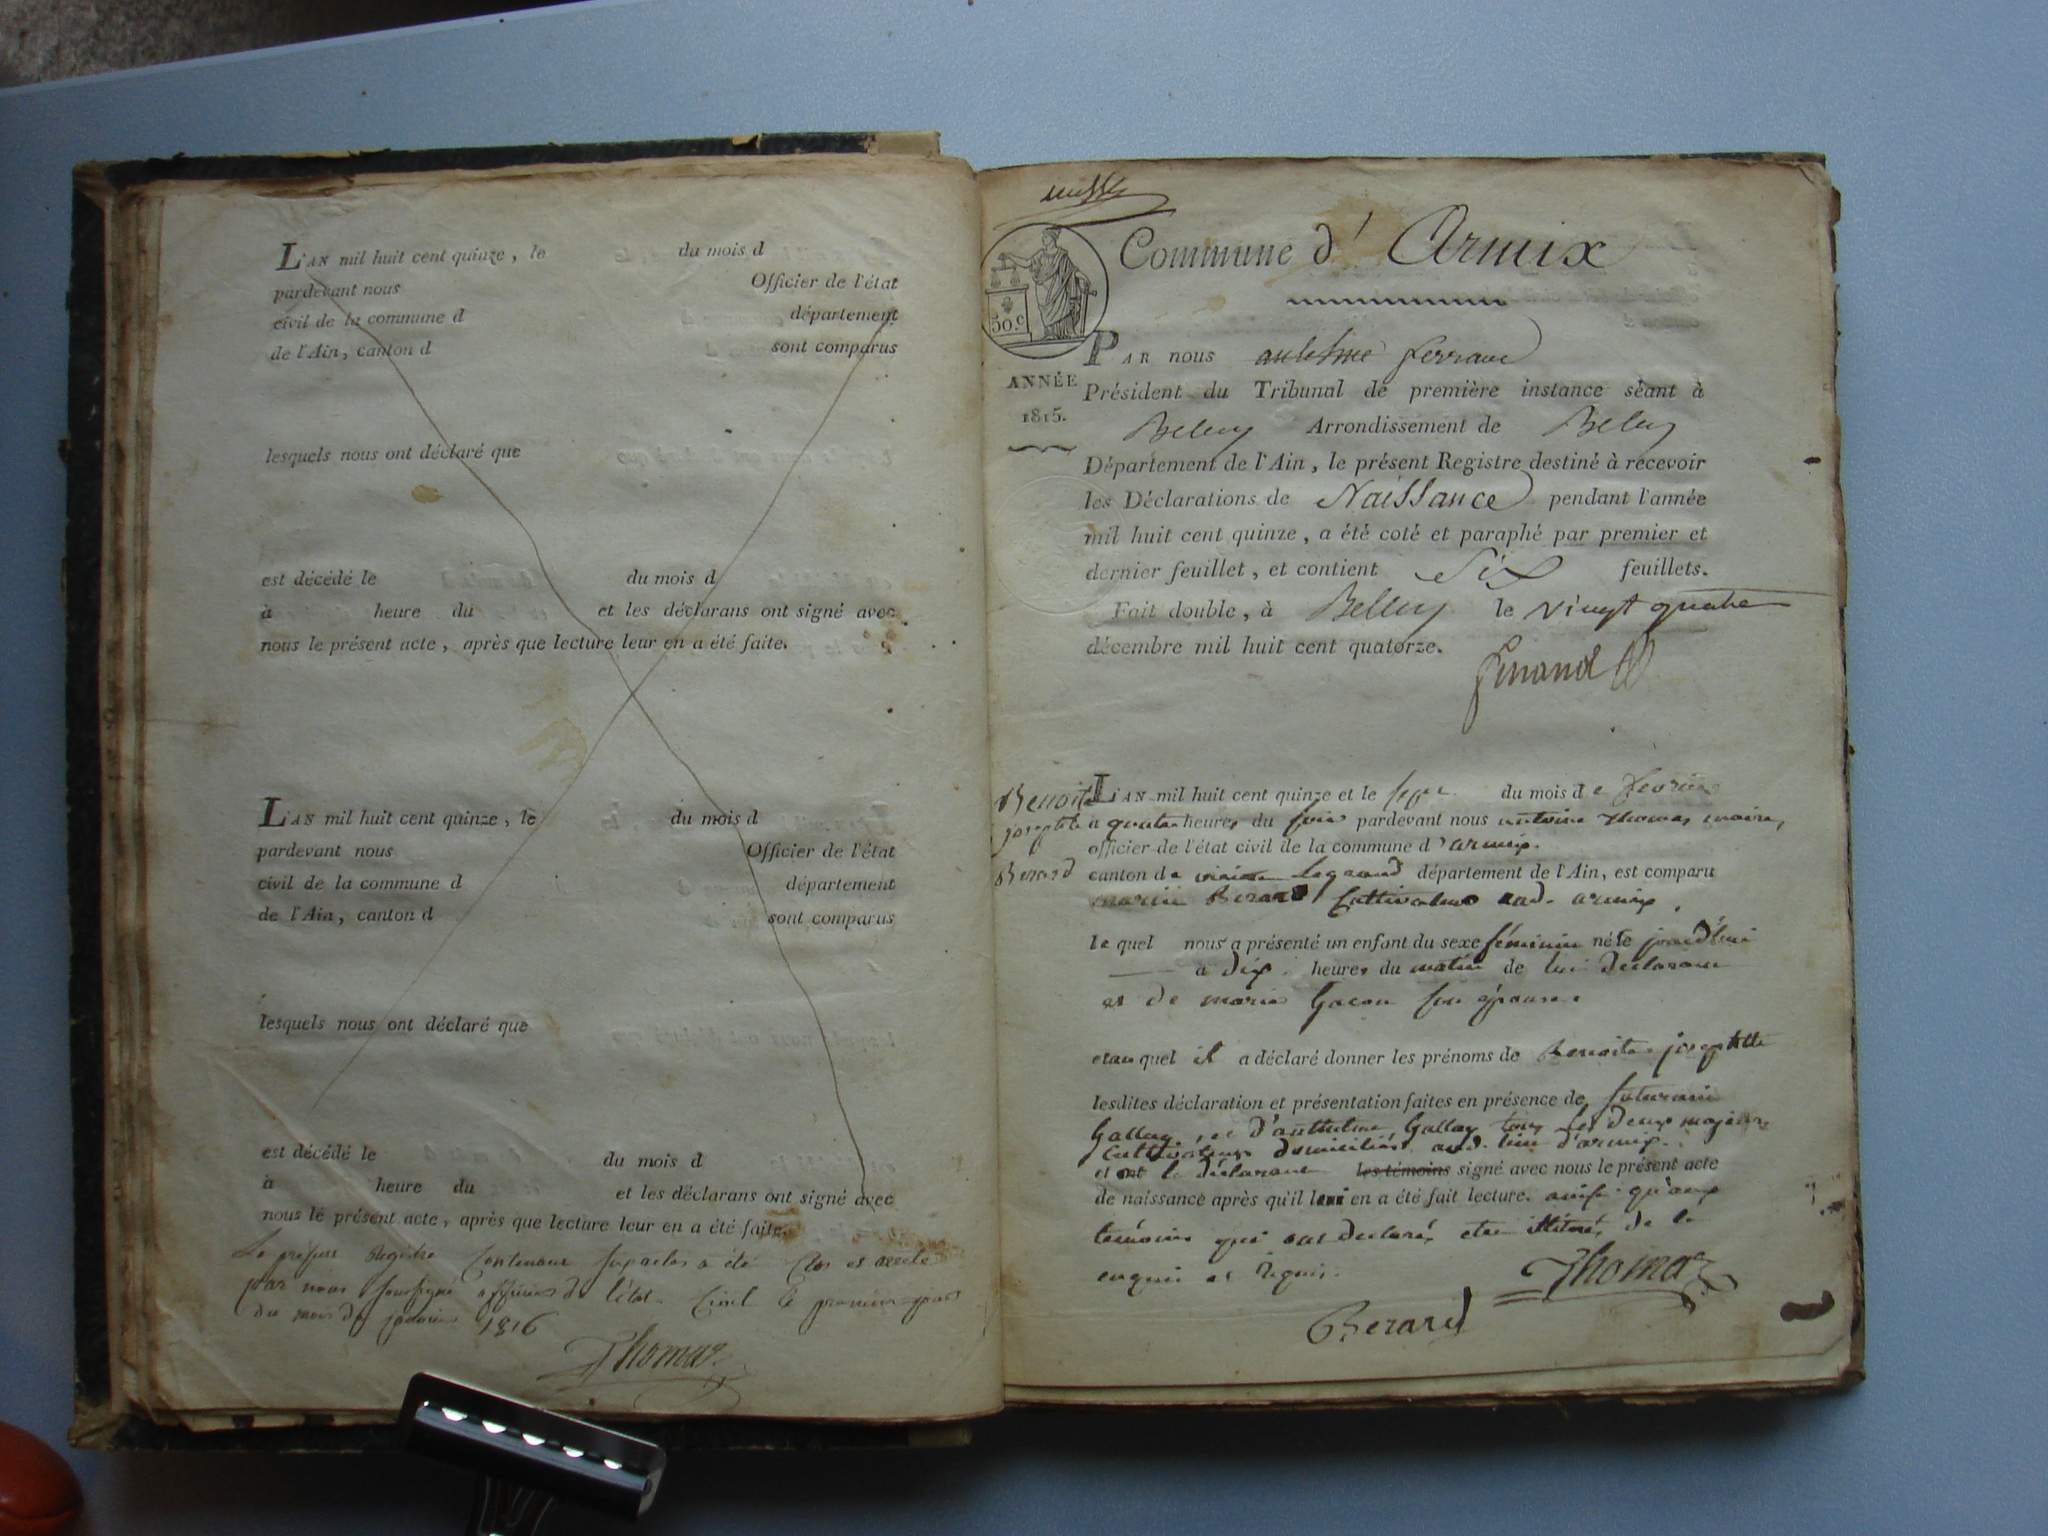 L'AN mil huit cent quinze, le du mois d
pardevant nous Officier de l'état
civil de la commune d département
de l'Ain, canton d sont comparus
lesquels nous ont déclaré que
est décédé le du mois d
à heure du et les déclarans ont signé avec
nous le présent acte, après que lecture leur en a été faite.
L'AN mil huit cent quinze, le du mois d
pardevant nous Officier de l'état
civil de la commune d département
de l'Ain, canton d sont comparus
lesquels nous ont déclaré que
est décédé le du mois d
à heure du et les déclarans ont signé avec
nous le présent acte, après que lecture leur en a été faite.
Le présent Registre Contenant a été Clos et
par nous soussigné officier de l'état Civil le premier jour
du mois de janvier 1816
Thomas
Commune d'Armix
50.c
ANNÉE
1815.
PAR nous anthelme ferrand
Président du Tribunal de première instance séant à
Belley Arrondissement de Belley
Département de l'Ain, le présent Registre destiné à recevoir
les Déclarations de Naissance pendant l'année
mil huit cent quinze, a été coté et paraphé par premier et
dernier feuillet, et contient Six feuillets.
Fait double, à Belley le vingt quatre
décembre mil huit cent quatorze.
Benoite
josephte
Berard
L'AN mil huit cent quinze et le du mois de fevrier
a quatre heures du soir pardevant nous antoine Thomas maire,
officier de l'état civil de la commune d'armix.
canton de virieu legrand département de l'Ain, est comparu
Berard Cultivateur armix
le quel nous a présenté un enfant du sexe féminin né le jourd'hui
a dix heures du matin de lui declarant
et de marie Gacon son épouse.
et auquel il a déclaré donner les prénoms de Benoite josephte
lesdites déclaration et présentation faites en présence de
Gallay, et d'anthelme Gallay tous les deux majeurs
Cultivateurs domiciliés aud. lieu d'armix.
et ont le déclarant les témoins signé avec nous le présent acte
de naissance après qu'il leur en a été fait lecture. qu'aux
témoins qui ont declaré etre illitérés de ce
enquis et Requis.
Thomas
Berard